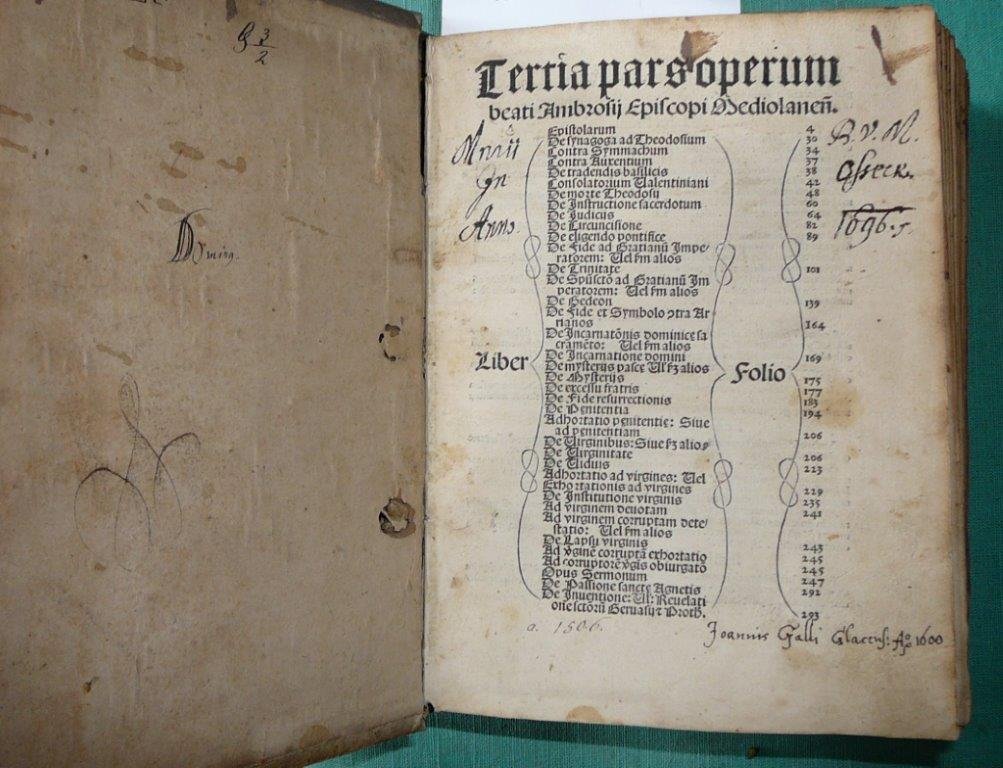 G 3/2
Tertia pars operum
beati Ambrosij Episcopi Mediolaneñ.
Epistolarum 4
De synagoga ad Theodosium 30
Contra Symmachum 34
Contra Auxentium 37
De tradendis basilicis 38
Consolatorium Ualentiniani 42
De morte Theodosij 48
De Instructione sacerdotum 60
De Iudicus 64
De Circuncisione 82
De eligendo pontifice 89
De Fide ad Gratianū Impe-
ratorem: Uel fm alios
De Trinitate 101
De Spūscto ad Gratianū Im
peratorem: Uel fm alios
De Gedeon 139
De Fide et Symbolo ꝯtra Ar
rianos 164
De Incarnatōnis dominice sa
crameto: Uel fm alios
De Incarnatione domini 169
De mysterijs pasce Ul fꝫ alios
De Mysterijs 175
De excessu fratris 177
De Fide resurrectionis 183
De Penitentia 194
Adhortatio penitentie: Siue
ad penitentiam 206
De Uirginibus: Siue fꝫ alios
De Uirginitate 206
De Uiduis 223
Adhortatio ad virgines: Uel
Exhortationis ad virgines 229
De Institutione virginis 235
Ad virginem deuotam 241
Ad virginem corruptam dete-
statio: Uel fm alios
De Lapsu virginis 243
Ad v̄gine corruptā exhortatio 245
Ad corruptorē v̄gis obiurgato 245
Opus Sermonum 247
De Passione sancte Agnetis 292
De Inuentione: Ul: Reuelati
one sctōrū Geruasij ꝛ Proth. 293
Liber
Folio
In
Anno
B. V. M.
Osseck.
1696.
a. 1506.
Joannis Galli Glacens: Aō 1600